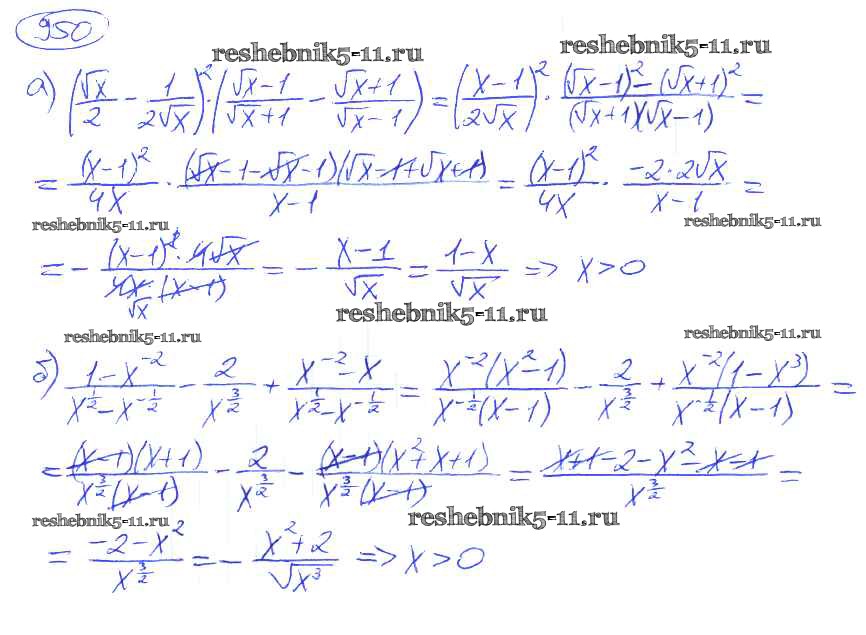 950
reshebnik5-11.ru reshebnik5-11.ru
а) (√x/2 - 1/(2√x))² · ((√x-1)/(√x+1) - (√x+1)/(√x-1)) = ((x-1)/(2√x))² · ((√x-1)² - (√x+1)²)/((√x+1)(√x-1)) =
= (x-1)²/(4x) · ((√x-1-√x-1)(√x-1+√x+1))/(x-1) = (x-1)²/(4x) · (-2·2√x)/(x-1) =
reshebnik5-11.ru reshebnik5-11.ru
= - ((x-1)²·4√x)/(4x·(x-1)) = - (x-1)/√x = (1-x)/√x => x>0
reshebnik5-11.ru
reshebnik5-11.ru reshebnik5-11.ru
б) (1-x⁻²)/(x^(1/2)-x^(-1/2)) - 2/x^(3/2) + (x⁻²-x)/(x^(1/2)-x^(-1/2)) = (x⁻²(x²-1))/(x^(-1/2)(x-1)) - 2/x^(3/2) + (x⁻²(1-x³))/(x^(-1/2)(x-1)) =
= ((x-1)(x+1))/(x^(3/2)(x-1)) - 2/x^(3/2) - ((x-1)(x²+x+1))/(x^(3/2)(x-1)) = (x+1-2-x²-x-1)/x^(3/2) =
reshebnik5-11.ru reshebnik5-11.ru
= (-2-x²)/x^(3/2) = - (x²+2)/√x³ => x>0